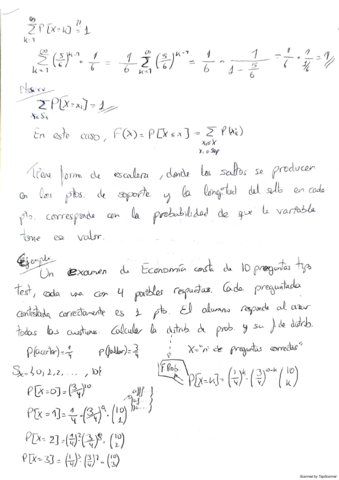 ∑_{k=1}^{∞} P[X=k] ?= 1
∑_{k=1}^{∞} (5/6)^{k-1} · 1/6 = 1/6 ∑_{k=1}^{∞} (5/6)^{k-1} = 1/6 · 1/(1 - 5/6) = 1/6 · 1/(1/6) = 1
∑ P[X=xi] = 1
xi∈Sx
En este caso, F(x) = P[X≤x] = ∑ P(xi)
Tiene forma de escalera, donde los saltos se producen
en los ptos. de soporte y la longitud del salto en cada
pto. corresponde con la probabilidad de que la variable
tome ese valor.
Ejemplo
Un examen de Economía consta de 10 preguntas tipo
test, cada una con 4 posibles respuestas. Cada preguntada
contestada correctamente es 1 pto. El alumno responde al azar
todas las cuestiones. Calcular la distrib de prob. y su f de distrib.
P(acertar) = 1/4 P(fallar) = 3/4 X = "nº de preguntas correctas"
F Prob.
Sx = {0, 1, 2, ..., 10} P[X=k] = (1/4)^k · (3/4)^{10-k} (10 k)
P[X=0] = (3/4)^10
P[X=1] = 1/4 · (3/4)^9 · (10 1)
P[X=2] = (1/4)^2 (3/4)^8 · (10 2)
P[X=3] = (1/4)^3 · (3/4)^7 · (10 3)
Scanned by TapScanner